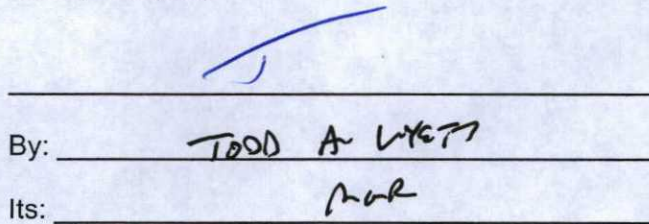 By: TODD A. WYETT
Its: MGR